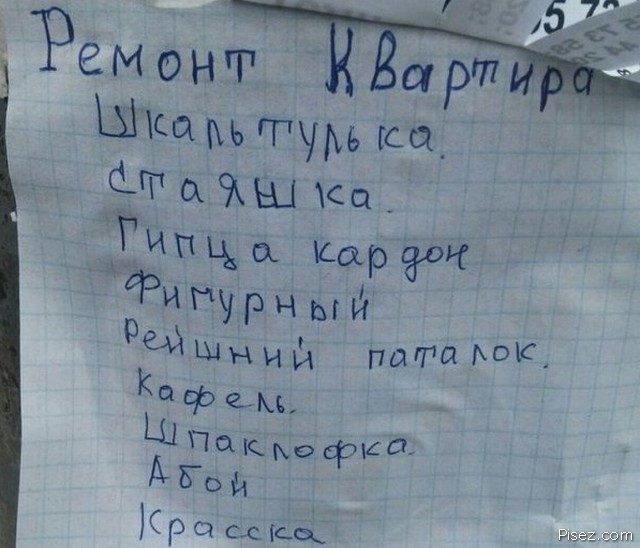 Ремонт Квартира
Шкальтулька.
стаяшка.
Гипца кардон
Фигурный
Рейшний паталок.
Кафель.
Шпаклофка
Абой
Красска
Pisez.com